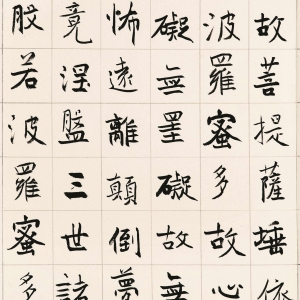 故菩提薩埵依
波羅蜜多故心
礙無罣礙故無
怖遠離顛倒夢
竟涅盤三世諸
般若波羅蜜多